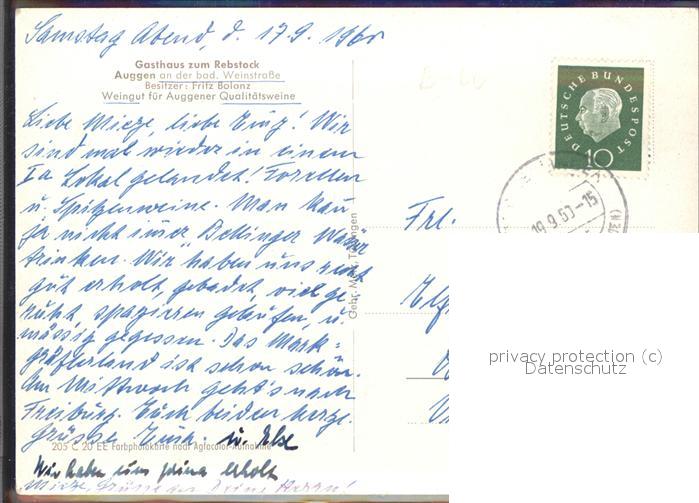 Samstag Abend, d. 17.9. 1960
Gasthaus zum Rebstock
Auggen an der bad. Weinstraße
Besitzer: Fritz Bolanz
Weingut für Auggener Qualitätsweine
Liebe Mieze, liebe! Wir
sind mal wieder in einem
Ia Lokal gelandet! Forellen
u. Spitzenweine. Man kann
ja nicht immer Bellinger Wasser
trinken. Wir haben uns recht
gut erholt, gebadet, viel ge-
ruht, spazieren gelaufen, u.
mässig gegessen. Das Mark-
gräflerland ist schon schön.
Am Mittwoch geht's nach
Freiburg. Euch beiden herzl.
Grüsse u. Else
205 C 20 EE Farbphotokarte nach Agfacolor-Aufnahme
Wir haben uns prima erholt
Mieze, Grüsse
Gebr. Metz, Tübingen
DEUTSCHE BUNDESPOST
10
19.9.60-15
Frl.
privacy protection (c)
Datenschutz